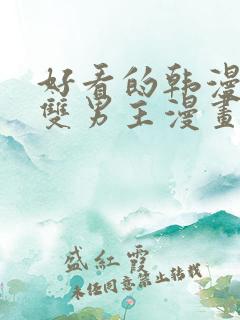 好看的韩漫
雙男主漫畫
盛紅霞
未经同意禁止转载